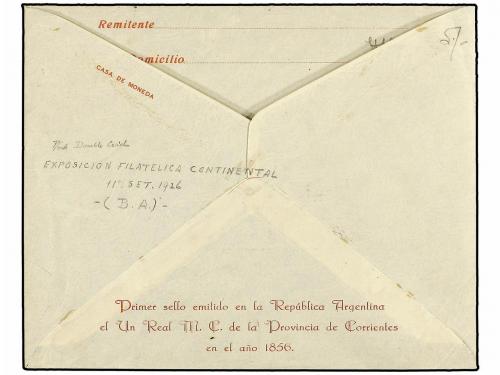 Remitente
omicilio
CASA DE MONEDA
EXPOSICION FILATELICA CONTINENTAL
11 SET. 1926
-( B.A.)-
Primer sello emitido en la República Argentina
el Un Real M. C. de la Provincia de Corrientes
en el año 1856.